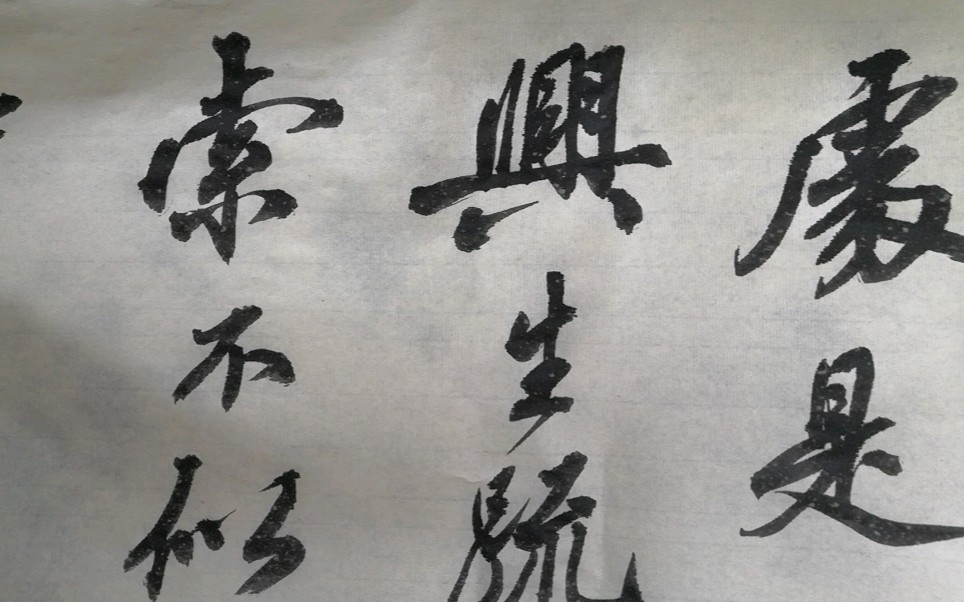 處是
興生疏
索不似